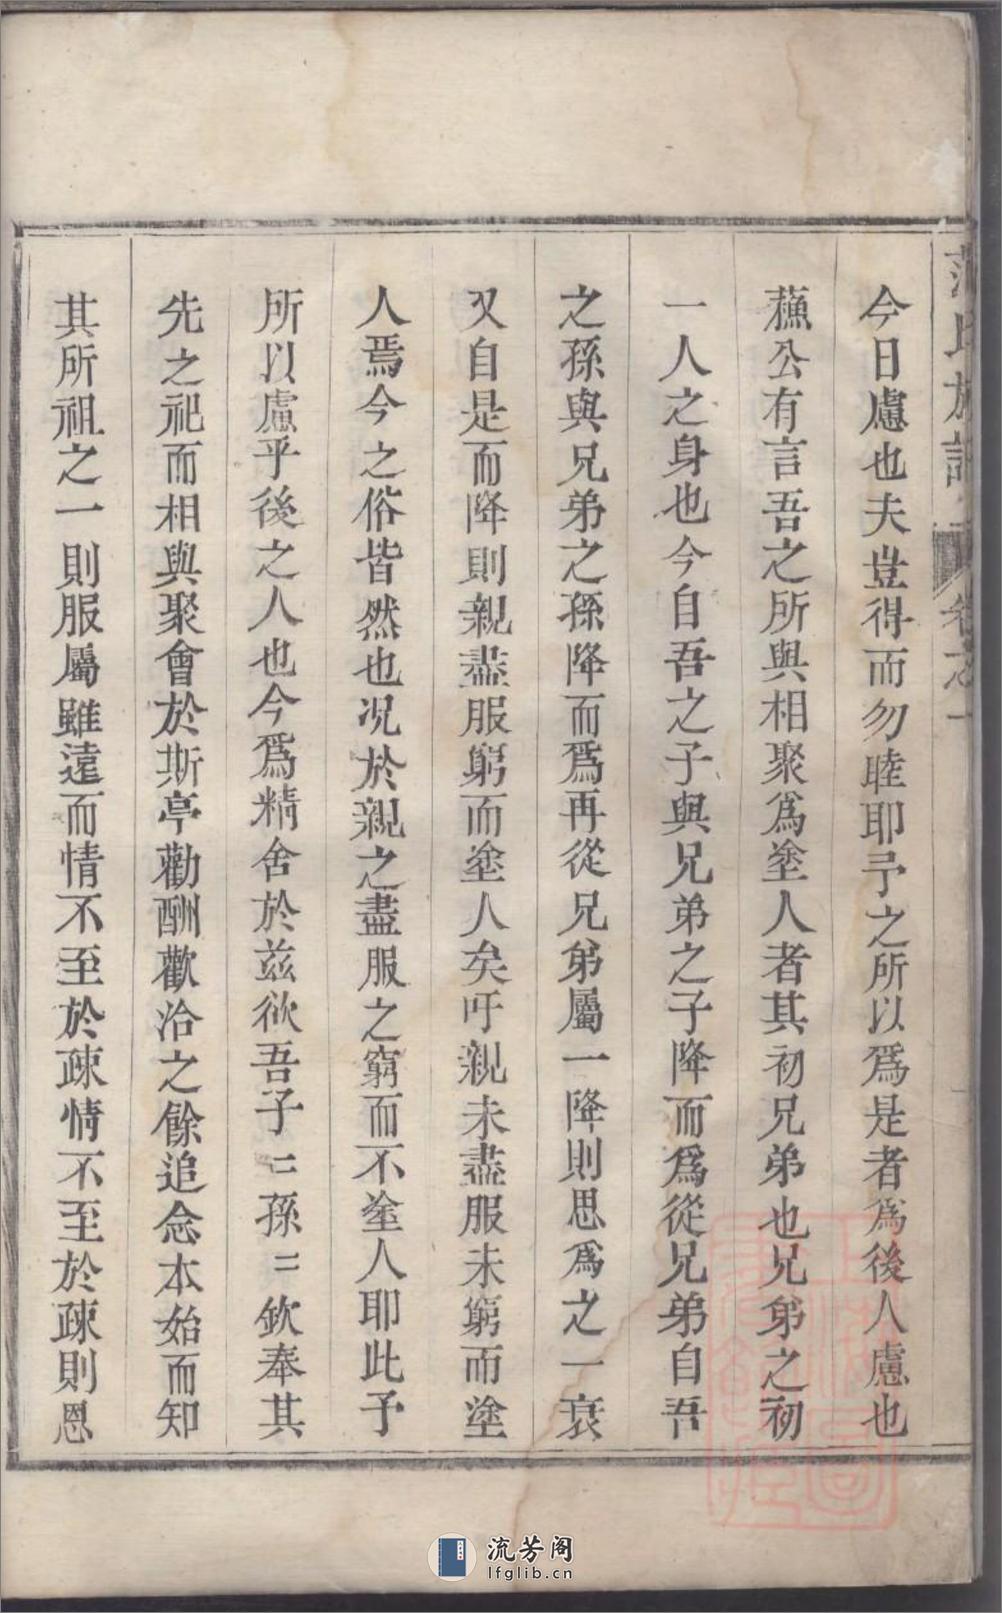 今日慮也夫豈得而勿睦耶予之所以爲是者爲後人慮也
蘓公有言吾之所與相聚爲塗人者其初兄弟也兄弟之初
一人之身也今自吾之子與兄弟之子降而爲從兄弟自吾
之孫與兄弟之孫降而爲再從兄弟屬一降則恩爲之一衰
又自是而降則親盡服窮而塗人矣吁親未盡服未窮而塗
人焉今之俗皆然也况於親之盡服之窮而不塗人耶此予
所以慮乎後之人也今爲精舍於兹欲吾子二孫二欽奉其
先之祀而相與聚會於斯亭勸酬歡洽之餘追念本始而知
其所祖之一則服屬雖遠而情不至於疎情不至於疎則恩
氏族譜 卷之一
流芳阁
lfglib.cn